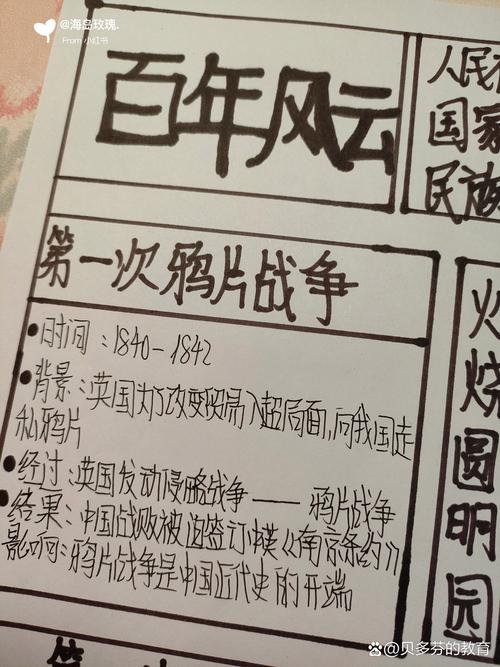 @海岛玫瑰.
From 小红书
百年风云
人民
国家
民族
第一次鸦片战争
时间：1840-1842
背景：英国为了改变贸易入超局面,向我国走
私鸦片
经过：英国发动侵略战争——鸦片战争
结果：中国战败被迫签订《南京条约》
影响：鸦片战争是中国近代史的开端
火烧圆明园
@贝多芬的教育